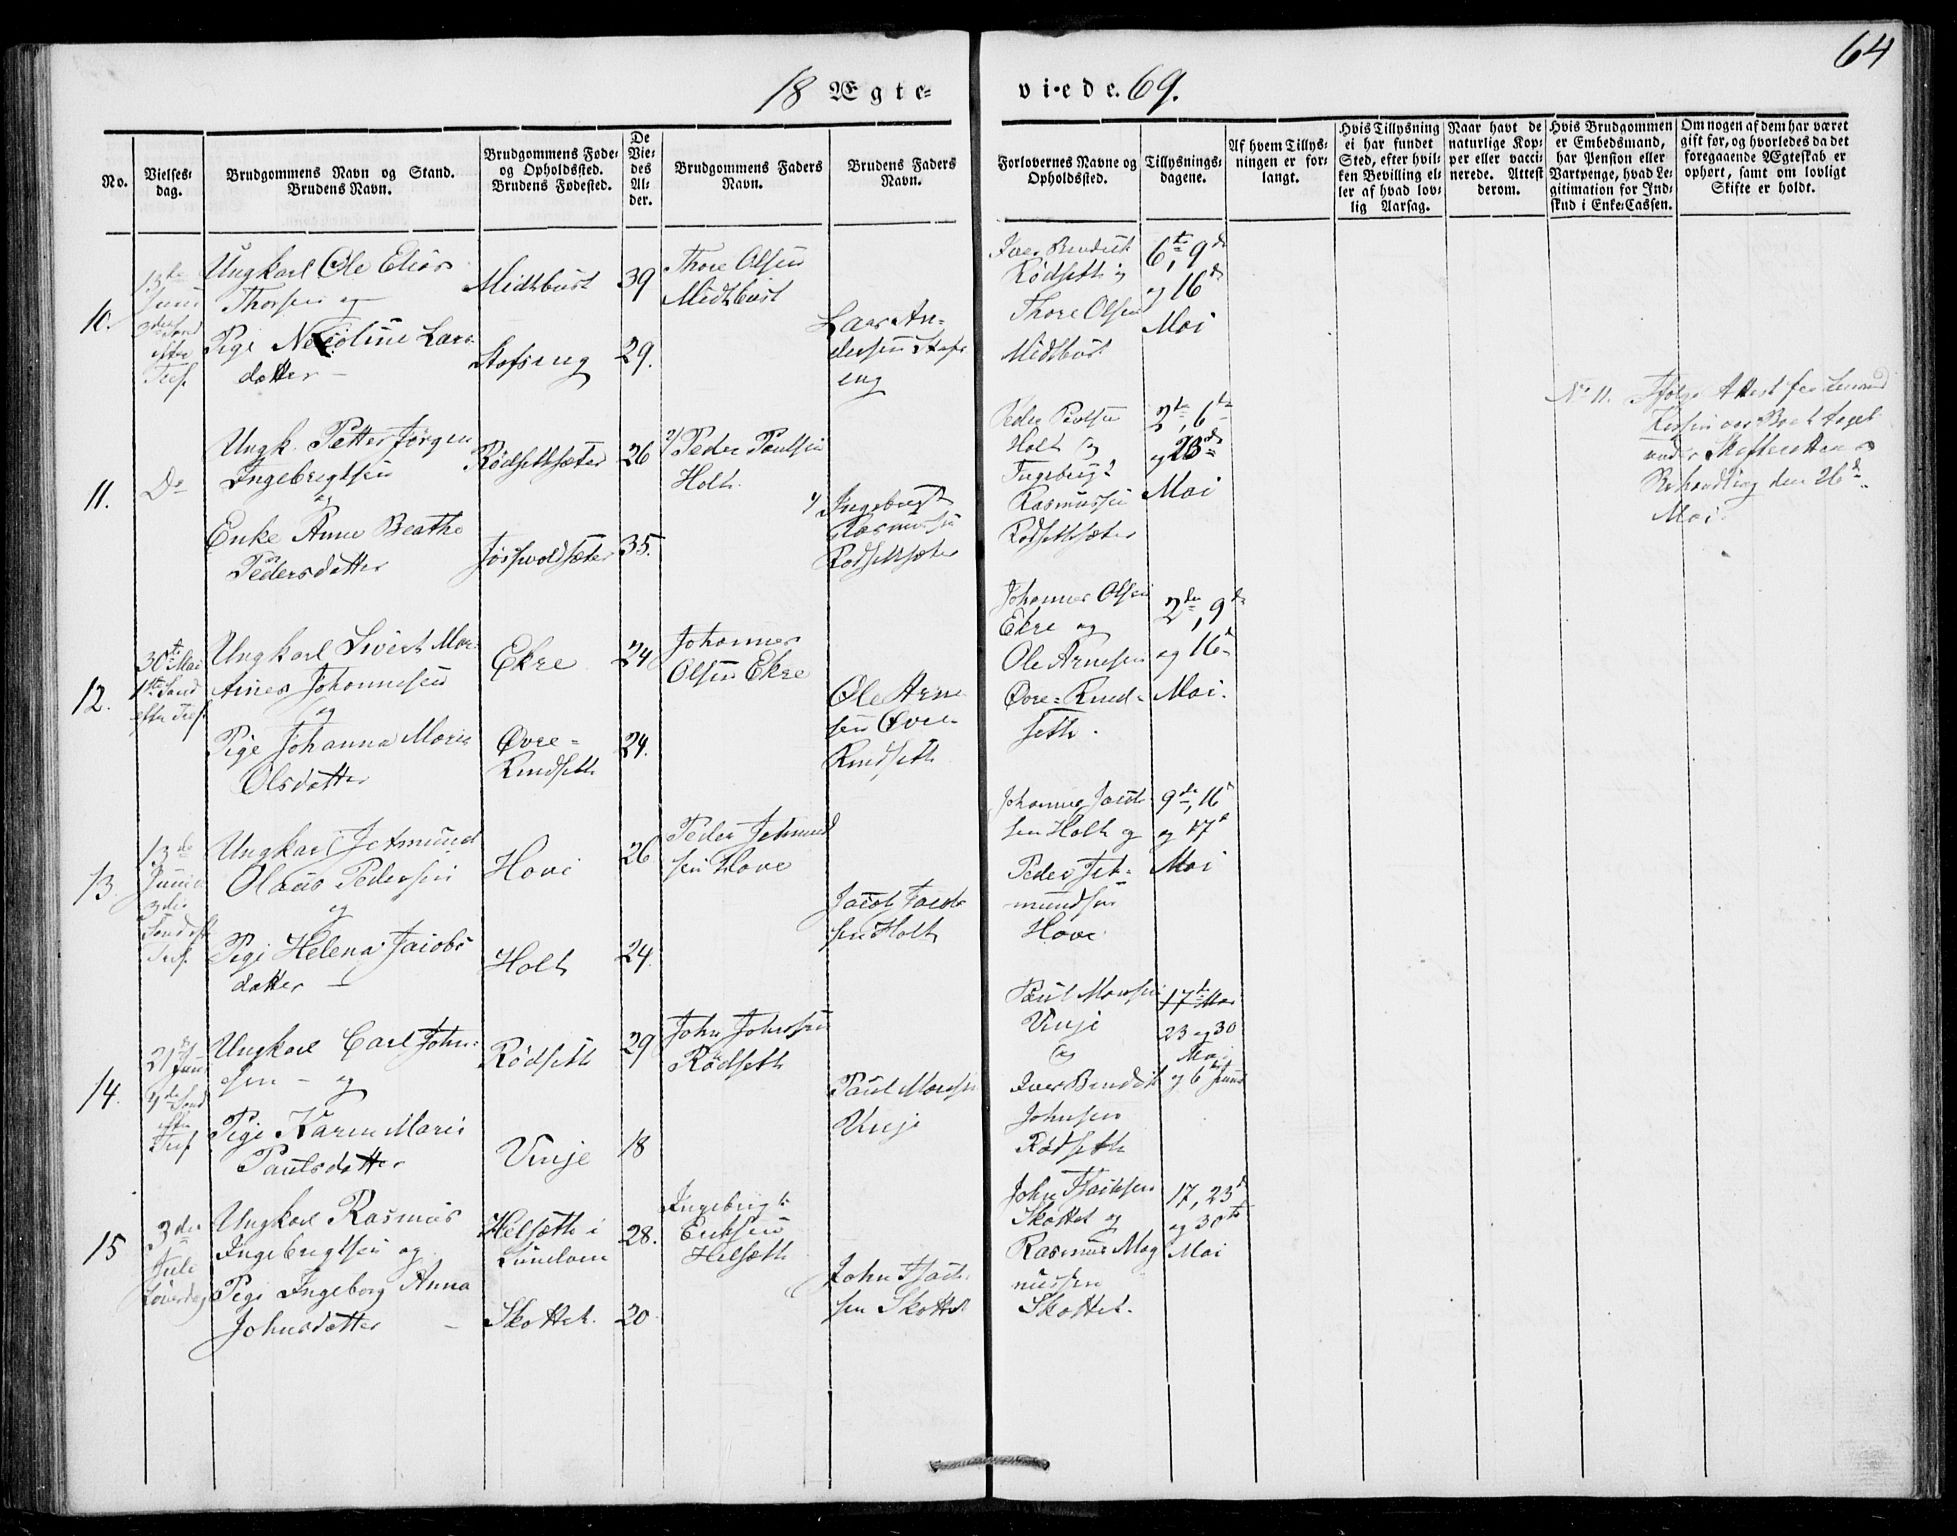 64
18 Ægte-
viede. 69.
No.
Vielses-
dag.
Brudgommens Navn og Stand.
Brudens Navn.
Brudgommens Føde-
og Opholdssted.
Brudens Fødested.
De
Vie-
des
Al-
der.
Brudgommens Faders
Navn.
Brudens Faders
Navn.
Forlovernes Navne og
Opholdssted.
Tillysnings-
dagene.
Af hvem Tillys-
ningen er for-
langt.
Hvis Tillysning
ei har fundet
Sted, efter hvil-
ken Bevilling el-
ler af hvad lov-
lig Aarsag.
Naar havt de
naturlige Kop-
per eller vacci-
nerede. Attest
derom.
Hvis Brudgommen
er Embedsmand,
har Pension eller
Vartpenge, hvad Le-
gitimation for Ind-
skud i Enke-Cassen.
Om nogen af dem har været
gift for, og hvorledes da det
foregaaende Ægteskab er
ophørt, samt om lovligt
Skifte er holdt.
10.
13de
Juni
3die Sønd
efter
Tref.
Ungkarl Ole Elias
Thorsen og
Pige Nicoline Lars
datter
Midtbust
Stafseng
39
29.
Thore Olsen
Midtbust
Lars An-
dersen Stafs
eng
Iver Bendict
Rødseth og
Thore Olsen
Midtbust
6te, 9de
og 16de
Mai
11.
Do
Ungk. Petter Jørgen
Ingebregtsen
og
Enke Anne Beathe
Pedersdatter
Rødsethsæter
26
35.
2/ Peder Paulsen
Holt.
1/ Ingebregt
Rasmussen
Rødsethsæter
Peder Paulsen
Holt og
Ingebregt
Rasmussen
Rødsethsæter
2de, 6te
og 23de
Mai
No 11. Ifølge Attest fra Lensmd
Boet taget
under Skifterettens
Behandling den 26de
Mai.
12.
30te Mai
1ste Sønd
efter Tref.
Ungkarl Sivert Mar-
Johannesen
og
Pige Johanna Marie
Olsdatter
Ekre
Øvre-
Rindseth
24
24.
Johannes
Olsen Ekre
Ole Arne
sen Øvre-
Rindseth
Johannes Olsen
Ekre og
Ole Arnesen
Øvre-Rind-
seth.
2den, 9de
og 16de
Mai.
13
13de
Juni
3die
Sønd eft
Tref.
Ungkarl Jetmund
Olaus Pedersen
og
Pige Helena Jacobs
datter
Hove
Holt
26
24.
Peder Jetmund
sen Hove
Jacob Jacob
sen Holt
Johannes Jacob
sen Holt og
Peder Jet-
mundsen
Hove
9de, 16de
og 17de
Mai
14.
21
Juni
Sønd
efter
Tref
Ungkarl Carl John-
sen og
Pige Karen Marie
Paulsdatter
Rødseth
Vinje
29
18
John Johnsen
Rødseth
Paul Monsen
Vinje
Paul Monsen
Vinje
og
Iver Bendict
Johnsen
Rødseth
17de Mai
23 og 30
Mai
og 6te Juni
15
3die
Juli
Løverdag
Ungkarl Rasmus
Ingebregtsen og
Pige Ingeborg Anna
Johnsdatter
Helsæth i
Skottet.
28.
20
Ingebrigt
Eriksen
Helsæth
John Isach
sen Skottet
John Isachsen
Skottet og
Rasmus Mag
nussen
Skottet.
17, 23de
og 30te
Mai